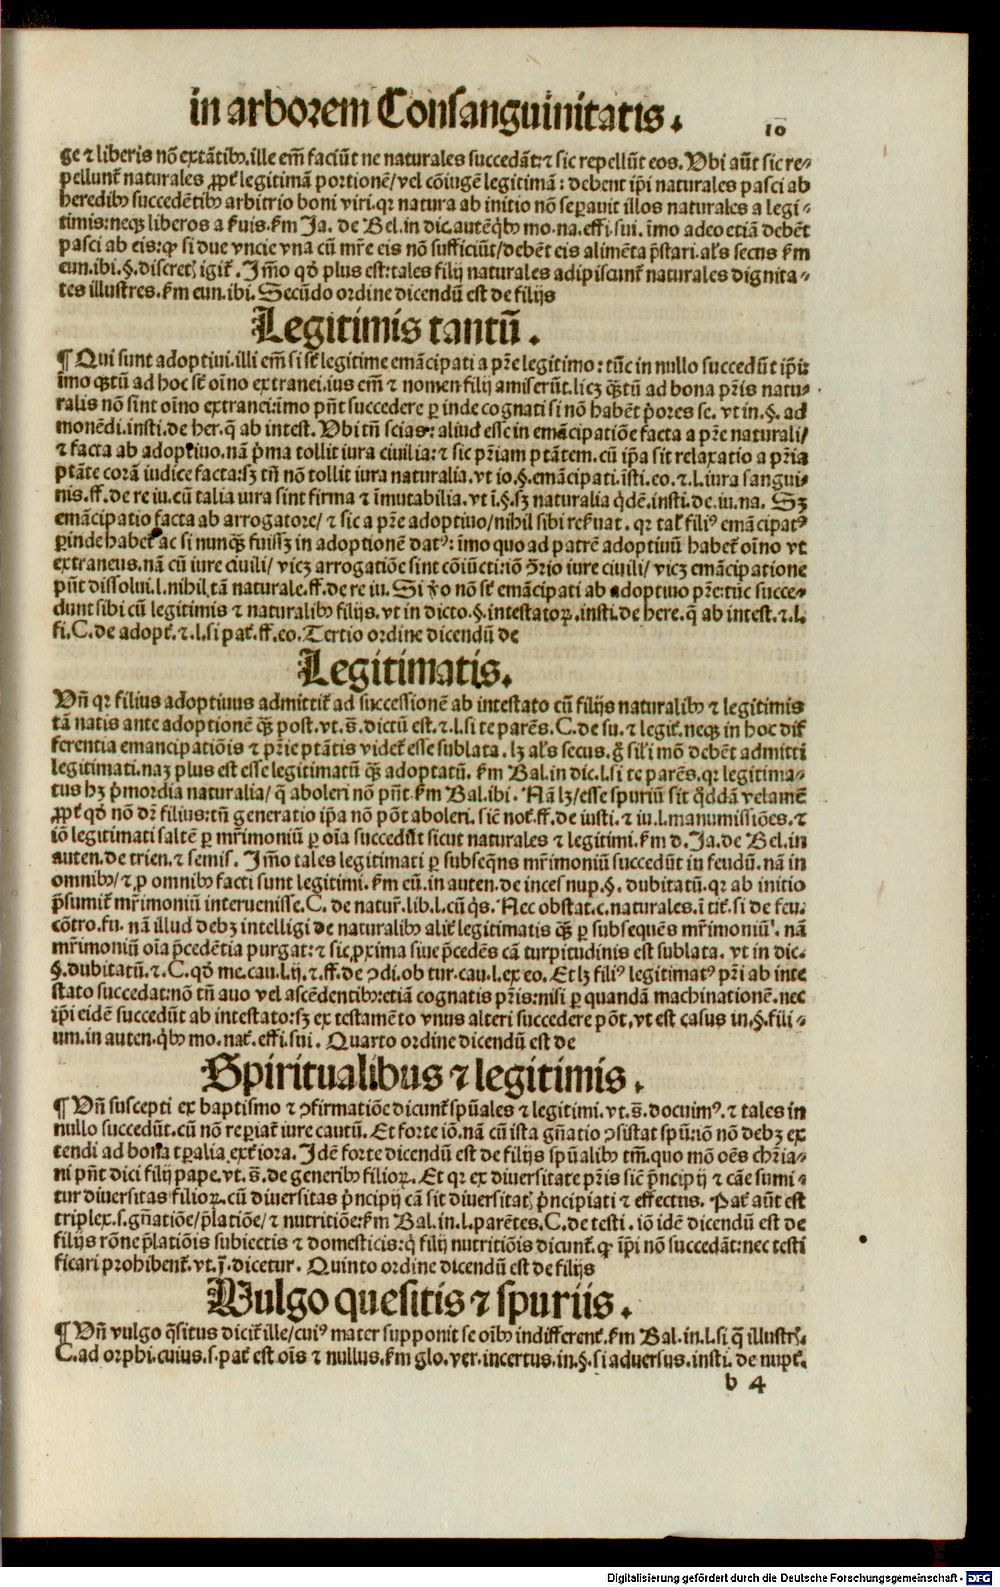 in arborem Consanguinitatis.
10
ge ⁊ liberis nō extātibꝰ. ille em̄ faciūt ne naturales succedāt: ⁊ sic repellūt eos. Vbi aūt sic re⸗
pellunt̄ naturales ꝓpt̄ legitimā portionē/ vel cōiugē legitimā: debent ip̄i naturales pasci ab
heredibꝰ succedētibꝰ arbitrio boni viri. qr natura ab initio nō seꝑauit illos naturales a legi⸗
timis: neqꝫ liberos a ẜuis. ẜm Ja. de Bel. in dic. autē q̄bꝰ mo. na. effi. sui. īmo adeo etiā debēt
pasci ab eis: ꝙ si due vncie vna cū mr̄e eis nō sufficiūt/ debēt eis alimēta p̄stari. al's secus ẜm
eun. ibi. §. discret igit̄. Jm̄o qð plus est: tales filij naturales adipiscunt̄ naturales dignita⸗
tes illustres. ẜm eun. ibi. Secūdo ordine dicendū est de filijs
Legitimis tantū.
¶ Qui sunt adoptiui. illi em̄ si st̄ legitime emācipati a pr̄e legitimo: tūc in nullo succedūt ip̄i:
īmo qꝫtū ad hoc st̄ oīno extranei. ius em̄ ⁊ nomen filij amiserūt. licꝫ qꝫtū ad bona pr̄is natu⸗
ralis nō sint oīno extranei: īmo pn̄t succedere ꝑ inde cognati si nō habēt p̄ores se. vt in. §. ad
monēdi. insti. de her. q̄ ab intest. Vbi tn̄ scias: aliud esse in emācipatiōe facta a pr̄e naturali/
⁊ facta ab adoptiuo. nā p̄ma tollit iura ciuilia: ⁊ sic pr̄iam ptātem. cū ip̄a sit relaxatio a pr̄ia
ptāte corā iudice facta: sꝫ tn̄ nō tollit iura naturalia. vt io. §. emācipati. īsti. eo. ⁊. l. iura sangui⸗
nis. ff. de re iu. cū talia iura sint firma ⁊ īmutabilia. vt ī. §. sꝫ naturalia q̄dē. insti. de. iu. na. Sꝫ
emācipatio facta ab arrogatore/ ⁊ sic a pr̄e adoptiuo/ nihil sibi reẜuat. qr tal' filiꝰ emācipatꝰ
ꝑinde habet̄ ac si nunqꝫ fuissꝫ in adoptionē datꝰ: īmo quo ad patrē adoptiuū habet̄ oīno vt
extraneus. nā cū iure ciuili/ vicꝫ arrogatiōe sint cōiūcti: iō ꝯrio iure ciuili/ vicꝫ emācipatione
pn̄t dissolui. l. nihil tā naturale. ff. de re iu. Si ꝟo nō st̄ emācipati ab adoptiuo pr̄e: tūc succe⸗
dunt sibi cū legitimis ⁊ naturalibꝰ filijs. vt in dicto. §. intestatoꝝ. insti. de here. q̄ ab intest. ⁊. l.
fi. C. de adopt̄. ⁊. l. si pat̄. ff. eo. Tertio ordine dicendū de
Legitimatis.
Vn̄ qr filius adoptiuus admittit̄ ad successionē ab intestato cū filijs naturalibꝰ ⁊ legitimis
tā natis ante adoptionē qꝫ post. vt. s̄. dictū est. ⁊. l. si te parēs. C. de su. ⁊ legit̄. neqꝫ in hoc dif
ferentia emancipatiōis ⁊ pr̄ie ptātis videt̄ esse sublata. lꝫ al's secus. g̊ sil'i mō debēt admitti
legitimati. naꝫ plus est esse legitimatū qꝫ adoptatū. ẜm Bal. in dic. l. si te parēs. qr legitima⸗
tus hꝫ p̄mordia naturalia/ q̄ aboleri nō pn̄t. ẜm Bal. ibi. Nā lꝫ/ esse spuriū sit q̄ddā velamē
ꝓpt̄ qð nō dr̄ filius: tn̄ generatio ip̄a nō pōt aboleri. sic̄ not̄. ff. de iusti. ⁊ iu. l. manumissiōes. ⁊
iō legitimati saltē ꝑ mr̄imoniū ꝑ oīa succedūt sicut naturales ⁊ legitimi. ẜm d. Ja. de Bel. in
auten. de trien. ⁊ semis. Jm̄o tales legitimati ꝑ subseq̄ns mr̄imoniū succedūt in feudū. nā in
omnibꝰ/ ⁊ ꝓ omnibꝰ facti sunt legitimi. ẜm eū. in auten. de inces nup. §. dubitatū. qr ab initio
p̄sumit̄ mr̄imoniū interuenisse. C. de natur̄. lib. l. cū q̄s. Nec obstat. c. naturales. ī tit̄. si de feu.
cōtro. fu. nā illud debꝫ intelligi de naturalibꝰ alit̄ legitimatis qꝫ ꝑ subsequēs mr̄imoniū. nā
mr̄imoniū oīa p̄cedētia purgat: ⁊ sic ꝓxima siue p̄cedēs cā turpitudinis est sublata. vt in dic.
§. dubitatū. ⁊. C. qð me. cau. l. ij. ⁊. ff. de ꝯdi. ob tur. cau. l. ex eo. Et lꝫ filiꝰ legitimatꝰ pr̄i ab inte
stato succedat: nō tn̄ auo vel ascēdentibꝰ: etiā cognatis pr̄is: nisi ꝑ quandā machinationē. nec
ip̄i eidē succedūt ab intestato: sꝫ ex testamēto vnus alteri succedere pōt. vt est casus in. §. fili⸗
um. in auten. q̄bꝰ mo. nat̄. effi. sui. Quarto ordine dicendū est de
Spiritualibus ⁊ legitimis.
¶ Vn̄ suscepti ex baptismo ⁊ ꝯfirmatiōe dicunt̄ spūales ⁊ legitimi. vt. s̄. docuimꝰ. ⁊ tales in
nullo succedūt. cū nō reꝑiat̄ iure cautū. Et forte iō. nā cū ista gn̄atio ꝯsistat spū: iō nō debꝫ ex
tendi ad bona tꝑalia ext̄iora. Jdē forte dicendū est de filijs spūalibꝰ tm̄. quo mō oēs chr̄ia⸗
ni pn̄t dici filij pape. vt. s̄. de generibꝰ filioꝝ. Et qr ex diuersitate pr̄is sic̄ p̄ncipij ⁊ cāe sumi⸗
tur diuersitas filioꝝ. cū diuersitas p̄ncipij cā sit diuersitat p̄ncipiati ⁊ effectus. Pat̄ aūt est
triplex. s. gn̄atiōe/ p̄latiōe/ ⁊ nutritiōe: ẜm Bal. in. l. parētes. C. de testi. iō idē dicendū est de
filijs rōne p̄latiōis subiectis ⁊ domesticis: q̄ filij nutritiōis dicunt̄. ꝙ ip̄i nō succedāt: nec testi
ficari prohibent̄. vt. j̄. dicetur. Quinto ordine dicendū est de filijs
Vulgo quesitis ⁊ spuriis.
¶ Vn̄ vulgo q̄situs dicit̄ ille/ cuiꝰ mater supponit se oībꝰ indifferent̄. ẜm Bal. in. l. si q̄ illustr̄.
C. ad orphi. cuius. s. pat̄ est oīs ⁊ nullus. ẜm glo. ver. incertus. in. §. si aduersus. insti. de nupt̄.
b 4
Digitalisierung gefördert durch die Deutsche Forschungsgemeinschaft - DFG